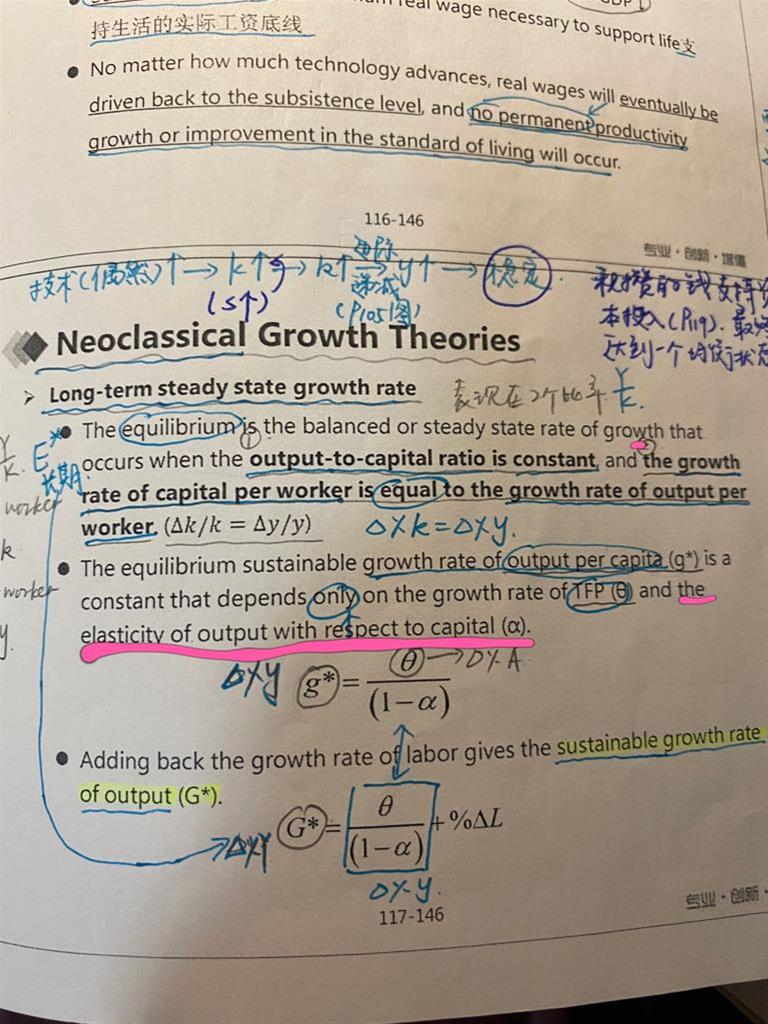 real wage necessary to support life支
持生活的实际工资底线
● No matter how much technology advances, real wages will eventually be
driven back to the subsistence level, and no permanent productivity
growth or improvement in the standard of living will occur.
116-146
专业·创新·增值
技术(偶然)↑→k↑→k↑ 边际递减→y↑→稳定
(S↑)
(P105图)
Neoclassical Growth Theories
➢ Long-term steady state growth rate 表现在2个比率 Y/K.
● The equilibrium is the balanced or steady state rate of growth that
occurs when the output-to-capital ratio is constant, and the growth
rate of capital per worker is equal to the growth rate of output per
worker. (Δk/k = Δy/y) Δ%k=Δ%y.
E*
长期
worker
k
worker
y.
● The equilibrium sustainable growth rate of output per capita (g*) is a
constant that depends only on the growth rate of TFP (θ) and the
elasticity of output with respect to capital (α).
Δ%y g* = θ/(1−α) → Δ%A
● Adding back the growth rate of labor gives the sustainable growth rate
of output (G*).
Δ%Y G* = θ/(1−α) + %ΔL
Δ%y.
117-146
专业·创新·